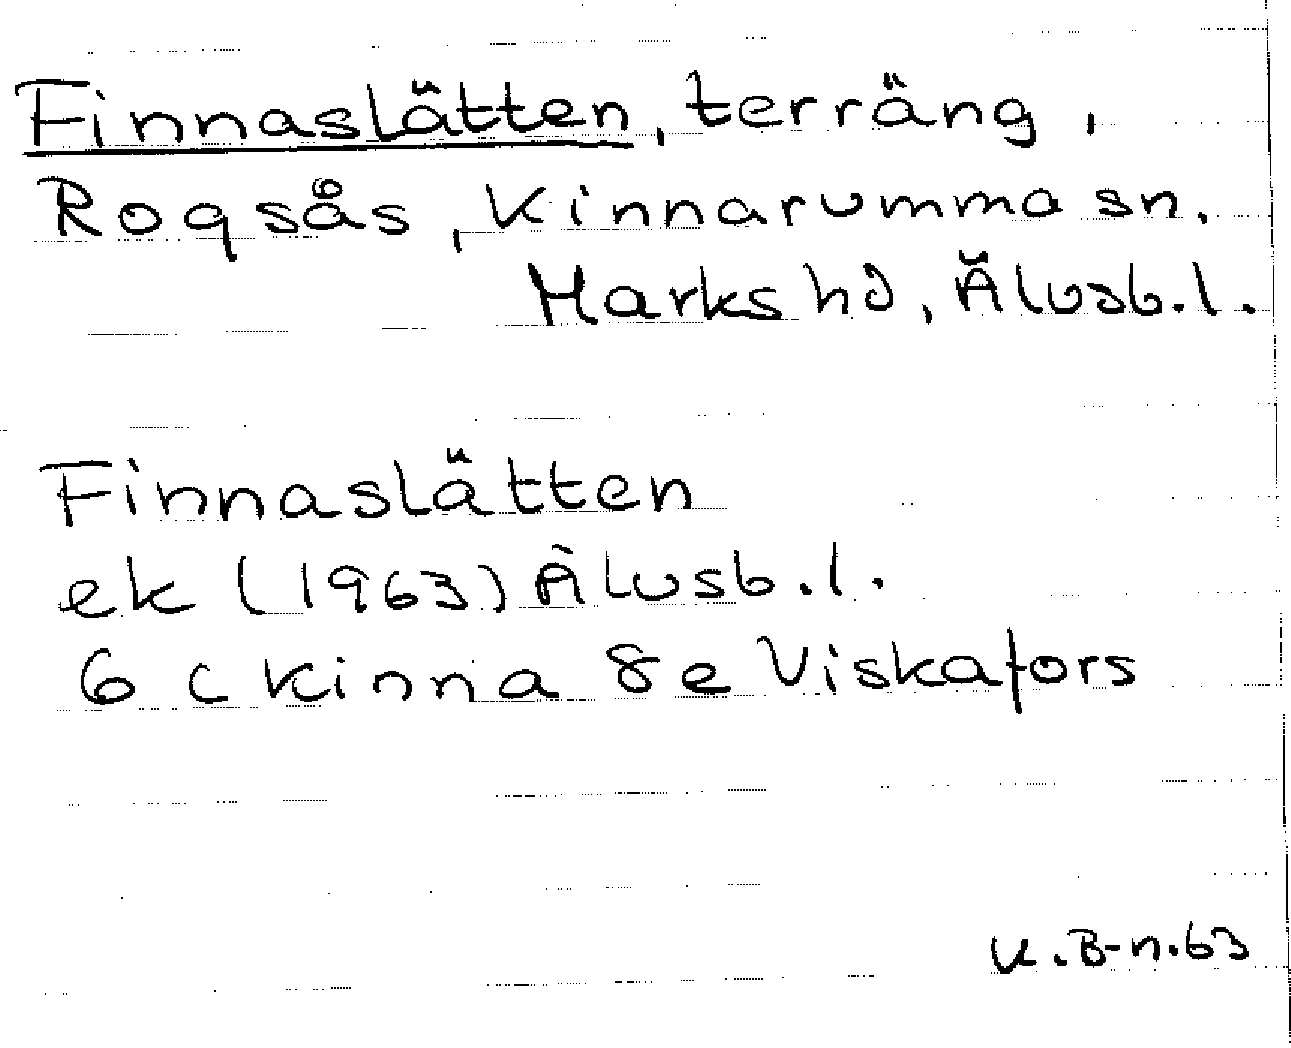 Finnaslätten, terräng,
Rogsås, Kinnarumma sn.
Marks hd, Älvsb.l.
Finnaslätten
ek (1963) Älvsb.l.
6 c Kinna 8e Viskafors
K.B-n.63